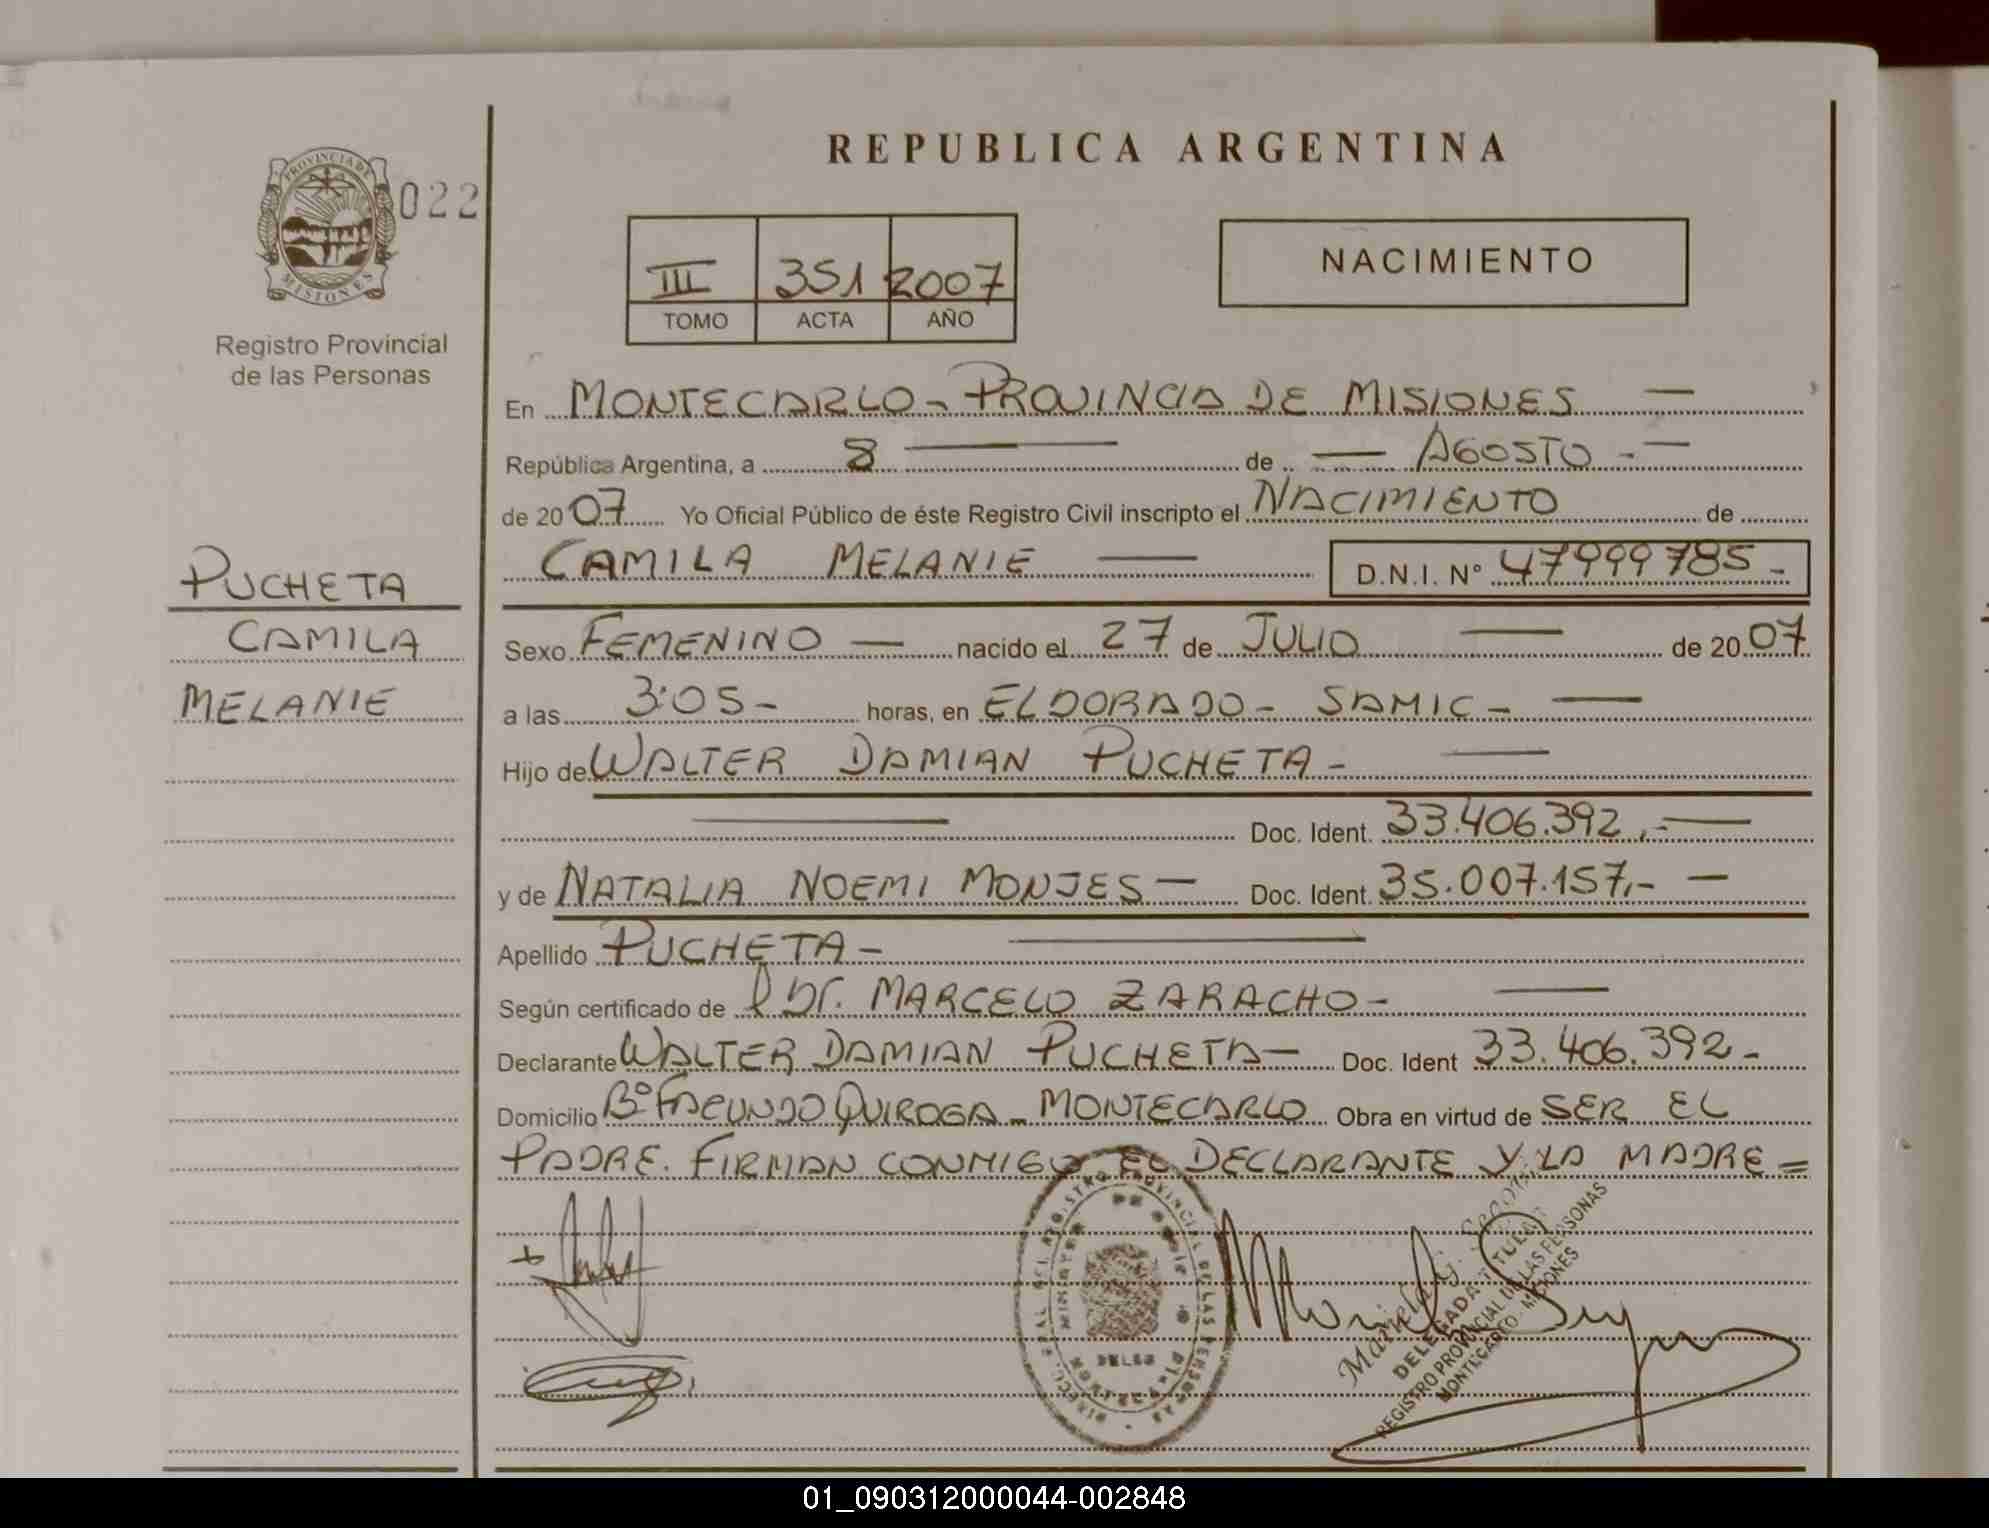 REPUBLICA ARGENTINA
PROVINCIA DE
MISIONES
022
Registro Provincial
de las Personas
III 351 2007
TOMO ACTA AÑO
NACIMIENTO
En MONTECARLO - PROVINCIA DE MISIONES —
República Argentina, a 8 — de — AGOSTO - —
de 2007 Yo Oficial Público de éste Registro Civil inscripto el NACIMIENTO de
CAMILA MELANIE — D.N.I. N° 47999785-
PUCHETA
CAMILA
MELANIE
Sexo FEMENINO — nacido el 27 de JULIO — de 2007
a las 3:05- horas, en ELDORADO - SAMIC - —
Hijo de WALTER DAMIAN PUCHETA - —
— Doc. Ident. 33.406.392,- —
y de NATALIA NOEMI MONJES — Doc. Ident. 35.007.157,- —
Apellido PUCHETA - —
Según certificado de l Dr. MARCELO ZARACHO - —
Declarante WALTER DAMIAN PUCHETA — Doc. Ident 33.406.392-
Domicilio B° FACUNDO QUIROGA - MONTECARLO Obra en virtud de SER EL
PADRE. FIRMAN CONMIGO EL DECLARANTE Y LA MADRE =
DELEGADA TITULAR
REGISTRO PROVINCIAL DE LAS PERSONAS
MONTECARLO - MISIONES
01_090312000044-002848